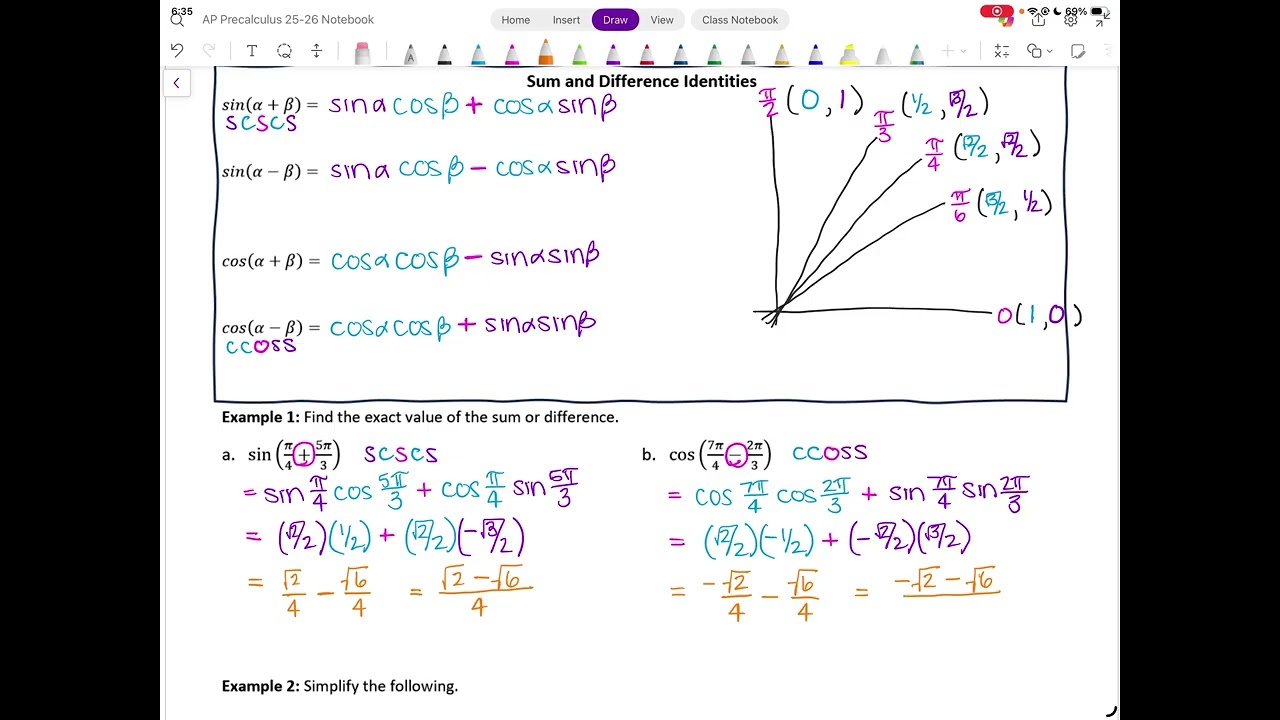 6:35
69%
AP Precalculus 25-26 Notebook
Home Insert Draw View Class Notebook
Sum and Difference Identities
sin(α + β) = sinα cosβ + cosα sinβ
SCSCS
sin(α − β) = sinα cosβ − cosα sinβ
cos(α + β) = cosα cosβ − sinα sinβ
cos(α − β) = cosα cosβ + sinα sinβ
CCOSS
π/2 (0,1)
π/3 (1/2, √3/2)
π/4 (√2/2, √2/2)
π/6 (√3/2, 1/2)
0 (1,0)
Example 1: Find the exact value of the sum or difference.
a. sin(π/4 + 5π/3) SCSCS
= sin π/4 cos 5π/3 + cos π/4 sin 5π/3
= (√2/2)(1/2) + (√2/2)(−√3/2)
= √2/4 − √6/4 = √2 − √6/4
b. cos(7π/4 − 2π/3) CCOSS
= cos 7π/4 cos 2π/3 + sin 7π/4 sin 2π/3
= (√2/2)(−1/2) + (−√2/2)(√3/2)
= −√2/4 − √6/4 = −√2 − √6
Example 2: Simplify the following.